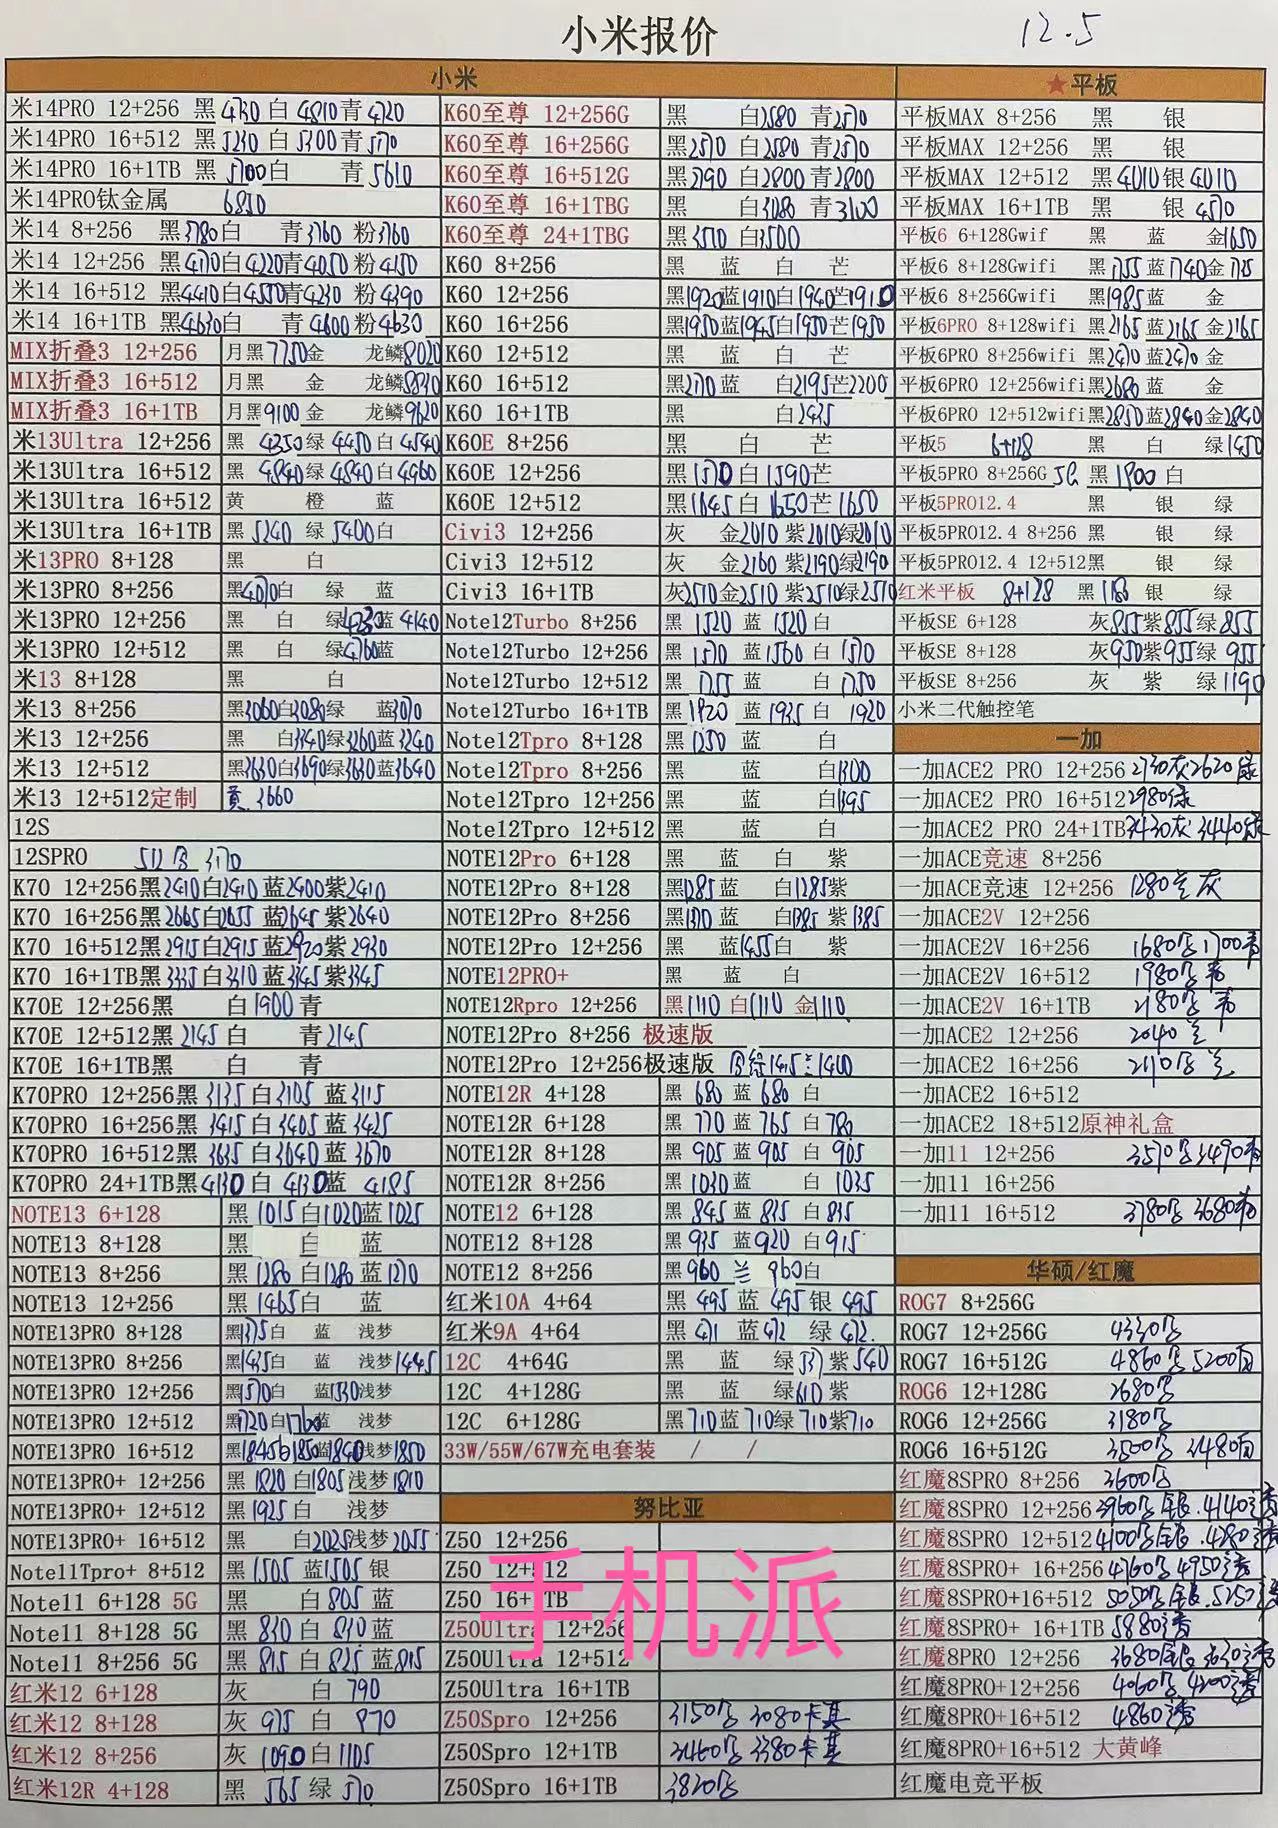 小米报价
12.5
小米
米14PRO 12+256 黑4730 白4810 青4720
米14PRO 16+512 黑5230 白5300 青5170
米14PRO 16+1TB 黑5700 白 青5610
米14PRO钛金属
米14 8+256 黑3780 白 青3760 粉3760
米14 12+256 黑4170 白4220 青4050 粉4150
米14 16+512 黑4410 白4550 青4230 粉4390
米14 16+1TB 黑4630 白 青4600 粉4630
MIX折叠3 12+256 月黑7750 金 龙鳞8020
MIX折叠3 16+512 月黑 金 龙鳞8830
MIX折叠3 16+1TB 月黑9100 金 龙鳞9620
米13Ultra 12+256 黑4350 绿4450 白4540
米13Ultra 16+512 黑4840 绿4840 白4960
米13Ultra 16+512 黄 橙 蓝
米13Ultra 16+1TB 黑5240 绿5400 白
米13PRO 8+128 黑 白
米13PRO 8+256 黑4010 白 绿 蓝
米13PRO 12+256 黑 白 绿4230 蓝4140
米13PRO 12+512 黑 白 绿4760 蓝
米13 8+128 黑 白
米13 8+256 黑3060 白3080 绿 蓝3070
米13 12+256 黑 白3240 绿3260 蓝3240
米13 12+512 黑3630 白3690 绿3630 蓝3640
米13 12+512定制 黄 3660
12S
12SPRO
K70 12+256 黑2410 白2410 蓝2400 紫2410
K70 16+256 黑2665 白2655 蓝2645 紫2640
K70 16+512 黑2915 白2915 蓝2920 紫2930
K70 16+1TB 黑3335 白3310 蓝3345 紫3345
K70E 12+256 黑 白1900 青
K70E 12+512 黑2145 白 青2145
K70E 16+1TB 黑 白 青
K70PRO 12+256 黑3135 白3105 蓝3115
K70PRO 16+256 黑3415 白3405 蓝3425
K70PRO 16+512 黑3635 白3640 蓝3670
K70PRO 24+1TB 黑4130 白4130 蓝4185
NOTE13 6+128 黑1015 白1020 蓝1025
NOTE13 8+128 黑 白 蓝
NOTE13 8+256 黑1280 白1280 蓝1270
NOTE13 12+256 黑1465 白 蓝
NOTE13PRO 8+128 黑1375 白 蓝 浅梦
NOTE13PRO 8+256 黑1435 白 蓝 浅梦1445
NOTE13PRO 12+256 黑1570 白 蓝1530 浅梦
NOTE13PRO 12+512 黑1720 白1760 蓝 浅梦
NOTE13PRO 16+512 黑1845 白1850 蓝1840 浅梦1850
NOTE13PRO+ 12+256 黑1820 白1805 浅梦1810
NOTE13PRO+ 12+512 黑1925 白 浅梦
NOTE13PRO+ 16+512 黑 白2025 浅梦2055
Note11Tpro+ 8+512 黑1505 蓝1505 银
Note11 6+128 5G 黑 白805 蓝
Note11 8+128 5G 黑830 白830 蓝
Note11 8+256 5G 黑815 白825 蓝815
红米12 6+128 灰 白790
红米12 8+128 灰975 白970
红米12 8+256 灰1090 白1105
红米12R 4+128 黑565 绿570
K60至尊 12+256G 黑 白2580 青2570
K60至尊 16+256G 黑2570 白2580 青2570
K60至尊 16+512G 黑2790 白2800 青2800
K60至尊 16+1TBG 黑 白3080 青3100
K60至尊 24+1TBG 黑3510 白3500
K60 8+256 黑 蓝 白 芒
K60 12+256 黑1920 蓝1910 白1940 芒1910
K60 16+256 黑1950 蓝1945 白1950 芒1950
K60 12+512 黑 蓝 白 芒
K60 16+512 黑2170 蓝 白2195 芒2200
K60 16+1TB 黑 白2435
K60E 8+256 黑 白 芒
K60E 12+256 黑1570 白1590 芒
K60E 12+512 黑1645 白1650 芒1650
Civi3 12+256 灰 金2010 紫2010 绿2010
Civi3 12+512 灰 金2160 紫2190 绿2190
Civi3 16+1TB 灰2510 金2510 紫2510 绿2510
Note12Turbo 8+256 黑1520 蓝1520 白
Note12Turbo 12+256 黑1570 蓝1560 白1570
Note12Turbo 12+512 黑1755 蓝 白1750
Note12Turbo 16+1TB 黑1920 蓝1935 白1920
Note12Tpro 8+128 黑1250 蓝 白
Note12Tpro 8+256 黑 蓝 白1300
Note12Tpro 12+256 黑 蓝 白1395
Note12Tpro 12+512 黑 蓝 白
NOTE12Pro 6+128 黑 蓝 白 紫
NOTE12Pro 8+128 黑1285 蓝 白1285 紫
NOTE12Pro 8+256 黑1370 蓝 白1385 紫1385
NOTE12Pro 12+256 黑 蓝1455 白 紫
NOTE12PRO+ 黑 蓝 白
NOTE12Rpro 12+256 黑1110 白1110 金1110
NOTE12Pro 8+256 极速版
NOTE12Pro 12+256极速版
NOTE12R 4+128 黑680 蓝680 白
NOTE12R 6+128 黑770 蓝765 白780
NOTE12R 8+128 黑905 蓝905 白905
NOTE12R 8+256 黑1030 蓝 白1035
NOTE12 6+128 黑845 蓝835 白835
NOTE12 8+128 黑935 蓝920 白915
NOTE12 8+256 黑960 兰960 白
红米10A 4+64 黑495 蓝495 银495
红米9A 4+64 黑471 蓝472 绿472
12C 4+64G 黑 蓝 绿537 紫540
12C 4+128G 黑 蓝 绿610 紫
12C 6+128G 黑710 蓝710 绿710 紫710
33W/55W/67W充电套装 / /
努比亚
Z50 12+256
Z50 12+512
Z50 16+1TB
Z50Ultra 12+256
Z50Ultra 12+512
Z50Ultra 16+1TB
Z50Spro 12+256 3150 3080卡其
Z50Spro 12+1TB 3460 3380卡其
Z50Spro 16+1TB 3820
★平板
平板MAX 8+256 黑 银
平板MAX 12+256 黑 银
平板MAX 12+512 黑4010 银4010
平板MAX 16+1TB 黑 银4570
平板6 6+128Gwif 黑 蓝 金1650
平板6 8+128Gwifi 黑1755 蓝1740 金1735
平板6 8+256Gwifi 黑1985 蓝 金
平板6PRO 8+128wifi 黑2165 蓝2165 金2165
平板6PRO 8+256wifi 黑2470 蓝2470 金
平板6PRO 12+256wifi 黑2680 蓝 金
平板6PRO 12+512wifi 黑2850 蓝2840 金2840
平板5 6+128 黑 白 绿1450
平板5PRO 8+256G 5G 黑1900 白
平板5PRO12.4 黑 银 绿
平板5PRO12.4 8+256 黑 银 绿
平板5PRO12.4 12+512 黑 银 绿
红米平板 8+128 黑 银 绿
平板SE 6+128 灰855 紫855 绿855
平板SE 8+128 灰950 紫955 绿955
平板SE 8+256 灰 紫 绿1190
小米二代触控笔
一加
一加ACE2 PRO 12+256 2730灰 2620绿
一加ACE2 PRO 16+512 2980绿
一加ACE2 PRO 24+1TB 3430灰 3440绿
一加ACE竞速 8+256
一加ACE竞速 12+256 1280兰灰
一加ACE2V 12+256
一加ACE2V 16+256 1680 1700
一加ACE2V 16+512 1980
一加ACE2V 16+1TB 2180
一加ACE2 12+256 2040兰
一加ACE2 16+256 2110 兰
一加ACE2 16+512
一加ACE2 18+512原神礼盒
一加11 12+256 3570 3490
一加11 16+256
一加11 16+512 3780 3680
华硕/红魔
ROG7 8+256G
ROG7 12+256G 4330
ROG7 16+512G 4860 5200白
ROG6 12+128G 2680
ROG6 12+256G 3180
ROG6 16+512G 3500 3480白
红魔8SPRO 8+256 3600
红魔8SPRO 12+256 3960 银 4140
红魔8SPRO 12+512 4100 银 4280
红魔8SPRO+ 16+256 4760 4950
红魔8SPRO+16+512 5050 银 5250
红魔8SPRO+ 16+1TB 5880
红魔8PRO 12+256 3680银 3630
红魔8PRO+12+256 4060 4200
红魔8PRO+16+512 4860
红魔8PRO+16+512 大黄峰
红魔电竞平板
手机派